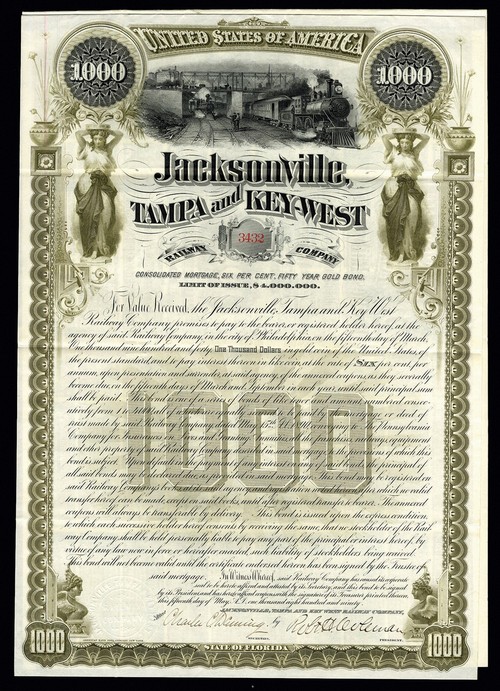 UNITED STATES OF AMERICA
1000 1000
Jacksonville,
TAMPA and KEY-WEST
3432
RAILWAY COMPANY
CONSOLIDATED MORTGAGE, SIX PER CENT. FIFTY YEAR GOLD BOND.
LIMIT OF ISSUE, $4,000,000.
For Value Received, the Jacksonville, Tampa and Key West
Railway Company promises to pay to the bearer, or registered holder hereof, at the
agency of said Railway Company, in the city of Philadelphia, on the fifteenth day of March
One thousand nine hundred and forty, One Thousand Dollars in gold coin of the United States, of
the present standard, and to pay interest thereon in like coin, at the rate of Six per cent. per
annum, upon presentation and surrender, at said agency, of the annexed coupons, as they severally
become due, on the fifteenth days of March and September in each year, until said principal sum
shall be paid. This bond is one of a series of bonds of like tenor and amount, numbered consec-
utively from 1 to all of which are equally secured by a mortgage or deed of
trust made by said Railway Company, dated May 15th, 1890, Pennsylvania
Company for Insurances on Lives and Granting railways, equipment
and other property of said Railway Company described in said mortgage, to the provisions of which this
bond is subject. Upon default in the payment of interest on any of said bonds the principal of
all said bonds may be declared due, as provided in said mortgage. This bond may be registered on
said Railway Company's books at its said agency after which no valid
transfer hereof can be made, except on said books, until after registered transfer to bearer. The annexed
coupons will always be transferable by delivery. This bond is issued upon the express condition,
to which each successive holder hereof consents by receiving the same, that no stockholder of the Rail-
way Company shall be held personally liable to pay any part of the principal or interest hereof, by
virtue of any law now in force or hereafter enacted, such liability of stockholders being waived.
This bond will not become valid until the certificate endorsed hereon has been signed by the Trustee of
said mortgage. In Witness Whereof, said Railway Company has caused its corporate
seal to be hereto affixed and attested by its Secretary, and this bond to be signed
by its President, and has hereto affixed coupons with the signature of its Treasurer printed thereon, this
fifteenth day of May A.D. one thousand eight hundred and ninety.
JACKSONVILLE, TAMPA AND KEY WEST RAILWAY COMPANY,
by Robt H Coleman
SECRETARY. PRESIDENT.
1000 STATE OF FLORIDA 1000